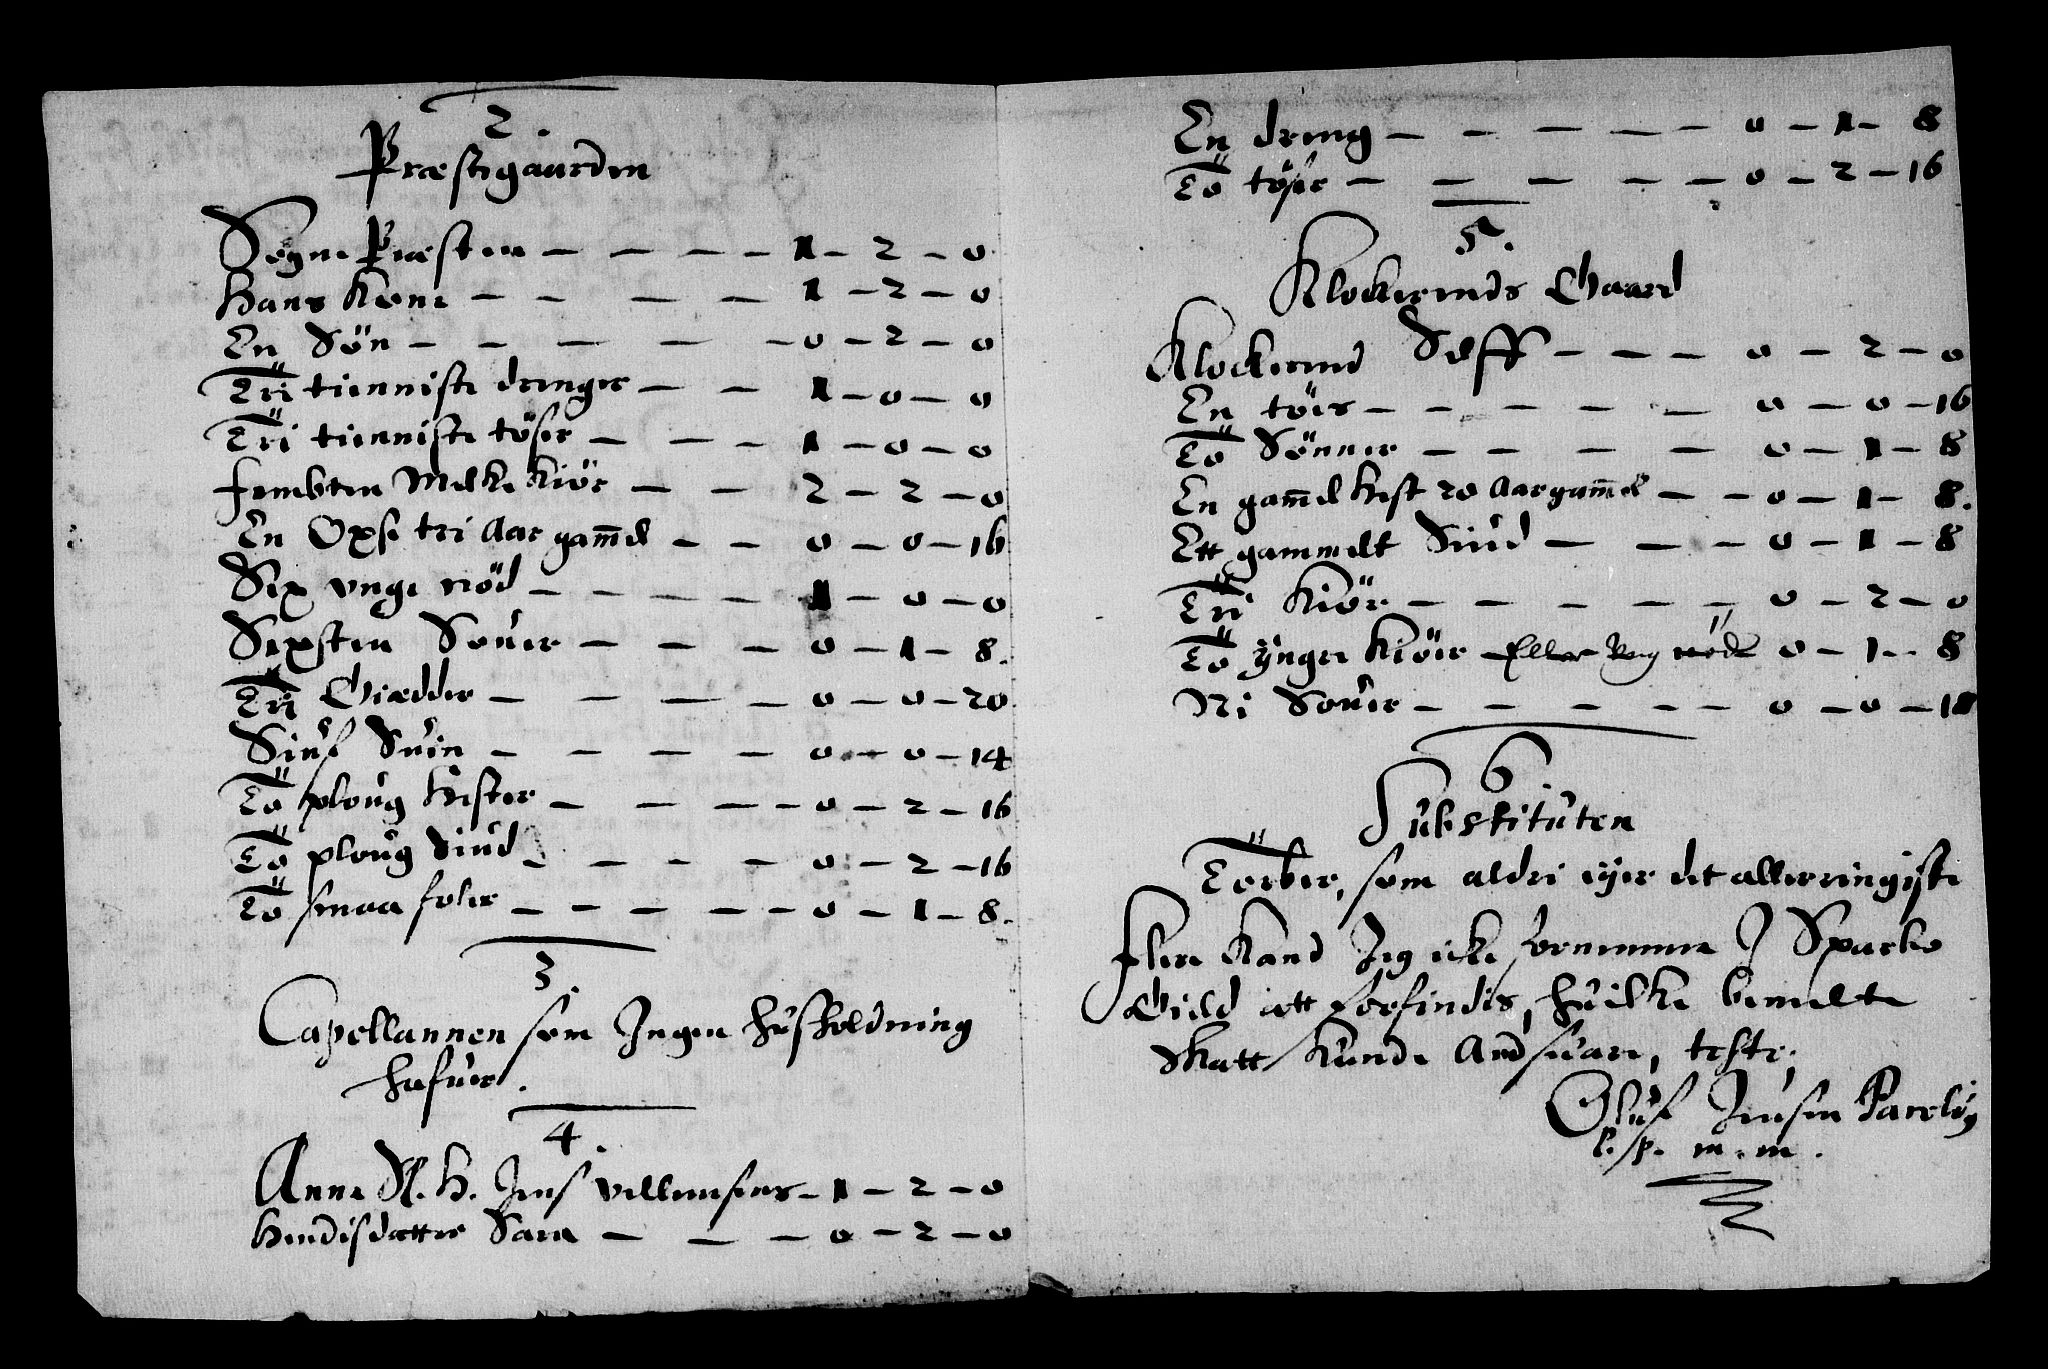 2.
Præstegaarden
Sogne Præsten — — — — 1 — 2 — 0
Hans Kone — — — — 1 — 2 — 0
En Sön — — — — — 0 — 2 — 0
Tri tienniste drenger — — 1 — 0 — 0
Tri tienniste töser — — — 1 — 0 — 0
fembten Melke Kiör — — 2 — 2 — 0
En Oxse tri Aar gam̄el — — 0 — 0 — 16
Sex unge nöd — — — — 1 — 0 — 0
Sexsten Souer — — — 0 — 1 — 8.
Tri Giædder — — — — 0 — 0 — 20
Siuf Suin — — — — 0 — 0 — 14
To ploug Hester — — — — 0 — 2 — 16
To ploug Siud — — — — 0 — 2 — 16
To smaa foler — — — — — 0 — 1 — 8.
3.
Capellannen som Ingen Husholdning
hafuer.
4.
Anne S. H. Jens Villumsens — 1 — 2 — 0
Hendis datter Sara — — — 0 — 2 — 0
En dreng — — — — — 0 — 1 — 8
To töser — — — — — 0 — 2 — 16
5.
Klockerends Gaard
Klockerend Self — — — 0 — 2 — 0
En töes — — — — — 0 — 0 — 16
To Sönner — — — — 0 — 1 — 8
En gam̄el Hest 20 Aar gam̄el — — 0 — 1 — 8.
Ett gammelt Siud — — — 0 — 1 — 8
Tri Kiör — — — — — 0 — 2 — 0
To ÿnger Kiöer Eller Ung nöd 0 — 1 — 8
Ni Souer — — — — — 0 — 0 — 18
6
Substituten
Torber, som aldri eÿer det allerringiste
flere Kand Jeg icke fornemme J Sparbo
Gield att forfindis, huilke bemelte
Skatt Kunde Andsuare, teste,
Oluf Jensen Parelius
l. p. m. m.